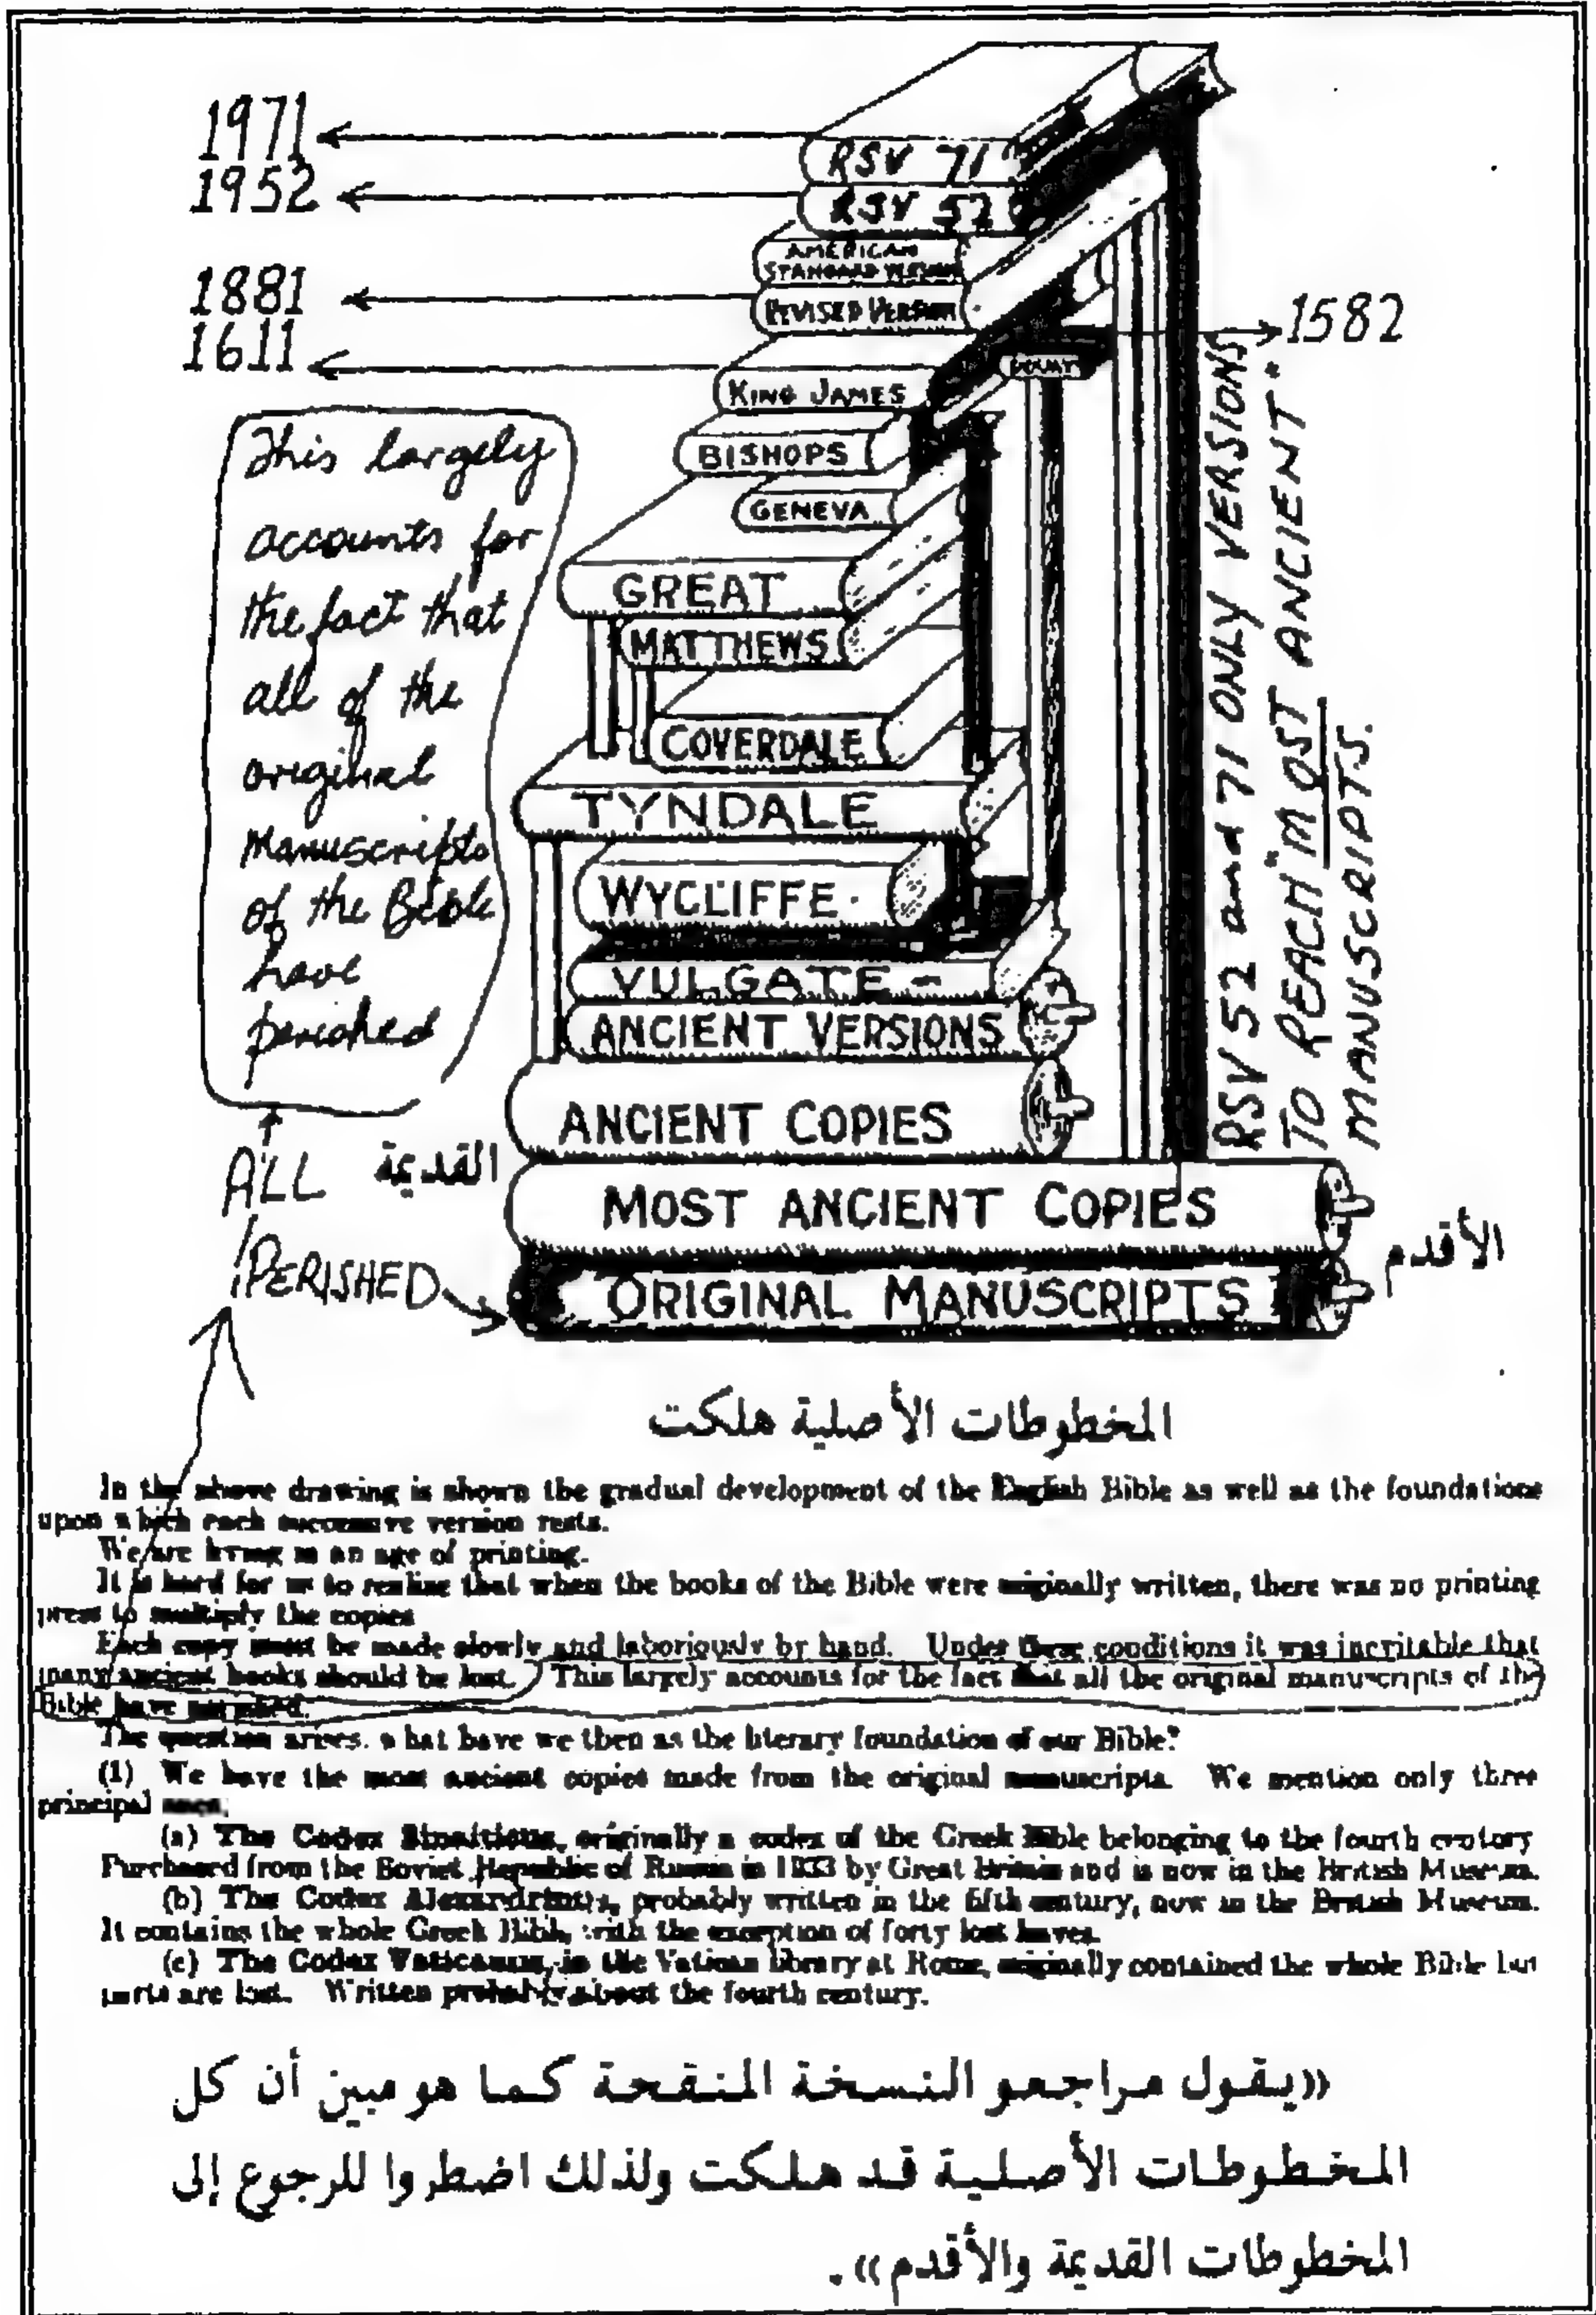 1971
1952
1881
1611
1582
RSV 71
RSV 52
AMERICAN
STANDARD VERSION
REVISED VERSION
KING JAMES
BISHOPS
GENEVA
GREAT
MATTHEWS
COVERDALE
TYNDALE
WYCLIFFE.
VULGATE -
ANCIENT VERSIONS
ANCIENT COPIES
MOST ANCIENT COPIES
ORIGINAL MANUSCRIPTS
This largely
accounts for
the fact that
all of the
original
Manuscripts
of the Bible
have
perished
ALL
PERISHED
القديمة
الأقدم
RSV 52 and 71 ONLY VERSIONS
TO REACH "MOST ANCIENT"
MANUSCRIPTS.
المخطوطات الأصلية هلكت
In the above drawing is shown the gradual development of the English Bible as well as the foundations
upon which each successive version rests.
We are living in an age of printing.
It is hard for us to realize that when the books of the Bible were originally written, there was no printing
press to multiply the copies
Each copy must be made slowly and laboriously by hand. Under these conditions it was inevitable that
many ancient books should be lost. This largely accounts for the fact that all the original manuscripts of the
Bible have perished.
The question arises. what have we then as the literary foundation of our Bible?
(1) We have the most ancient copies made from the original manuscripts. We mention only three
principal
(a) The Codex Sinaiticus, originally a codex of the Greek Bible belonging to the fourth century
Purchased from the Soviet Republic of Russia in 1933 by Great Britain and is now in the British Museum.
(b) The Codex Alexandrinus, probably written in the fifth century, now in the British Museum.
It contains the whole Greek Bible, with the exception of forty lost leaves.
(c) The Codex Vaticanus, in the Vatican library at Rome, originally contained the whole Bible but
parts are lost. Written probably about the fourth century.
«يقول مراجعو النسخة المنقحة كما هو مبين أن كل
المخطوطات الأصلية قد هلكت ولذلك اضطروا للرجوع إلى
المخطوطات القديمة والأقدم».